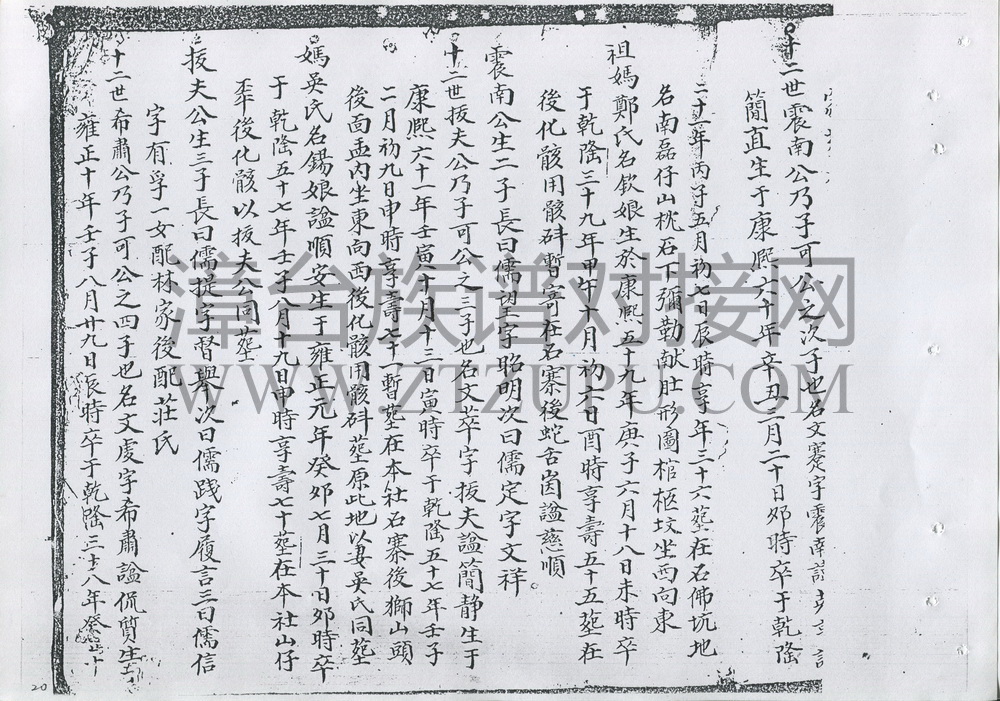 十二世震南公乃子可公之次子也名文蹇字震南諡
簡直生于康熙六十年辛丑二月二十日夘時卒于乾隆
二十一年丙子五月初七日辰時享年三十六塟在石佛坑地
名南磊仔山枕石下彌勒献肚形圖棺柩坟坐西向東
祖媽鄭氏名欽娘生於康熙五十九年庚子六月十八日未時卒
于乾隆三十九年甲午十月初六日酉時享壽五十五塟在
後化骸用骸砵暫寄在石寨後蛇舌崮諡慈順
震南公生二子長曰儒望字昭明次曰儒定字文祥。
十二世拔夫公乃子可公之三子也名文萃字拔夫諡簡静生于
康熙六十一年壬寅十月十三日寅時卒于乾隆五十七年壬子
二月初九日申時享壽七十一暫塟在本社石寨後獅山頭
後面孟内坐東向西後化骸用骸砵塟原此地以妻吳氏同塟
媽吳氏名錫娘諡順安生于雍正元年癸夘七月三十日夘時卒
于乾隆五十七年壬子八月十九日申時享壽七十塟在本社山仔
後化骸以拔夫公同塟
拔夫公生三子長曰儒提字督舉次曰儒践字履言三曰儒信
字有孚一女配林家後配莊氏
十二世希肅公乃子可公之四子也名文虔字希肅諡侃質生
雍正十年壬子八月廿九日辰時卒于乾隆三十八年癸巳十
20
漳台族谱对接网
WWW.ZTZUPU.COM